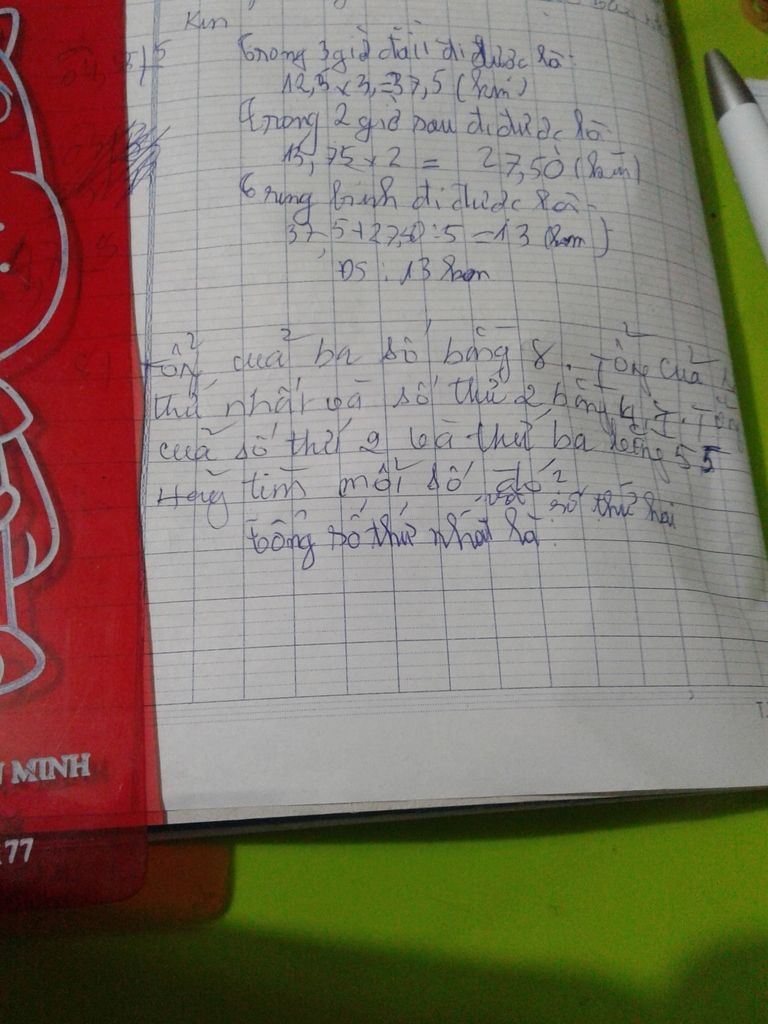 Km
Trong 3 giờ đầu đi được là:
12,5 x 3 = 37,5 (km)
Trong 2 giờ sau đi được là
13,75 x 2 = 27,50 (km)
Trung bình đi được là:
37,5 + 27,50 : 5 = 13 (km)
ĐS : 13 km
Tổng của ba số bằng 8. Tổng của
thứ nhất và số thứ 2 bằng 4,7. Tổng
của số thứ 2 và thứ ba bằng 5 5
Hãy tìm mỗi số đó?
và số thứ hai
tổng số thứ nhất là:
MINH
77